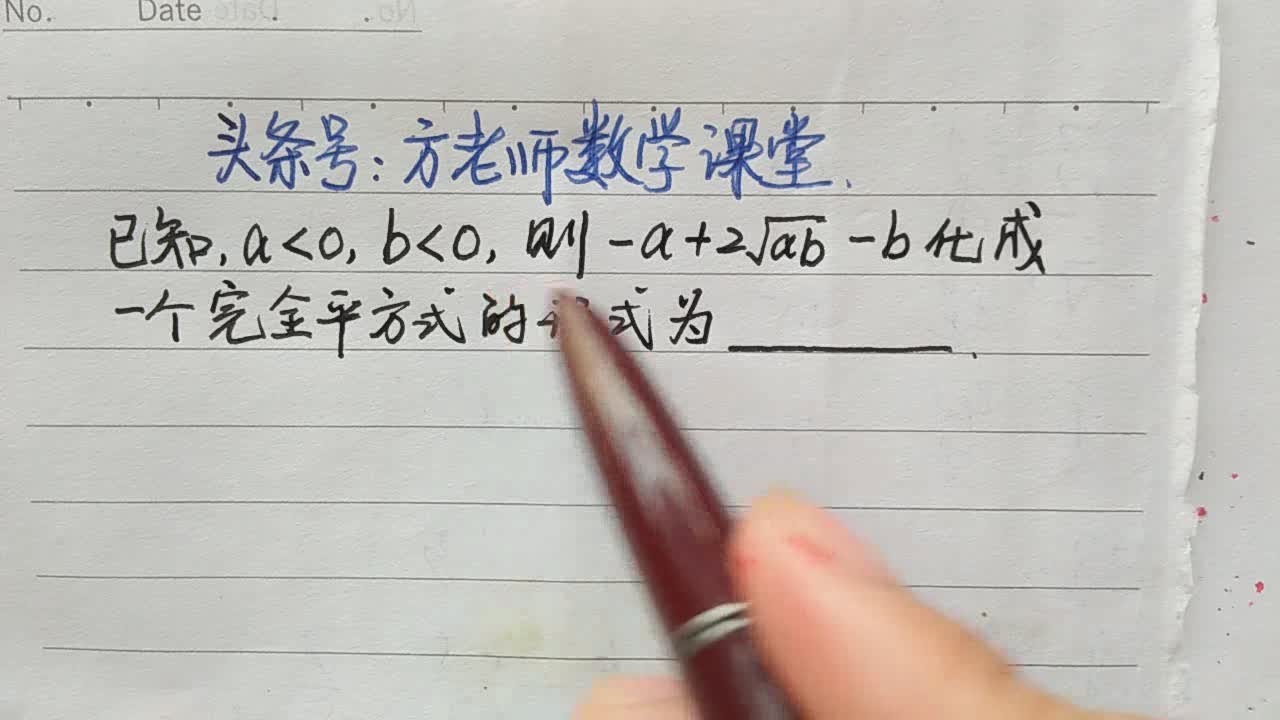 No. Date . .
头条号:方老师数学课堂.
已知,a<0,b<0,则-a+2√ab-b化成
一个完全平方式的式为________.